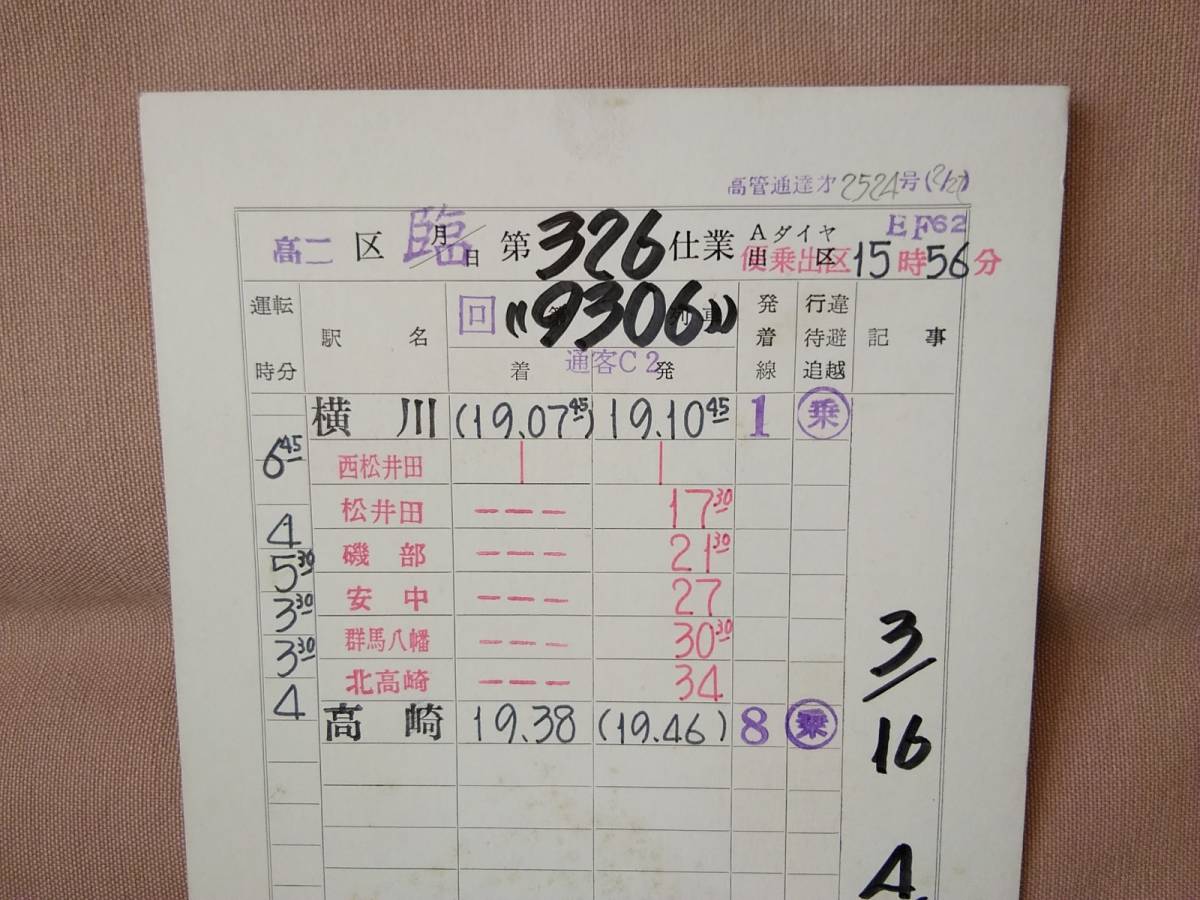 高管通達才2524号(2/27)
高二 区 臨 月/日 第326仕業 Aダイヤ EF62
便乗出区15時56分
出 区
運転時分 駅名 回 《9306》 列車 発着線 行違待避追越 記事
着 通客C2 発
横川 (19.07 45) 19.10 45 1 乗
6 45
西松井田 | |
松井田 --- 17 30
4
磯部 --- 21 30
5 30
安中 --- 27
3 30
群馬八幡 --- 30 30
3 30
北高崎 --- 34
4
高崎 19.38 (19.46) 8 乗
3/16
A